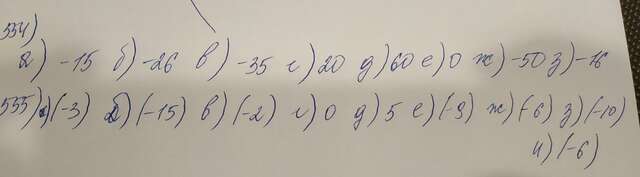 534)
а) -15 б) -26 в) -35 г) 20 д) 60 е) 0 ж) -50 з) -16
535) а) (-3) б) (-15) в) (-2) г) 0 д) 5 е) (-9) ж) (-6) з) (-10)
и) (-6)